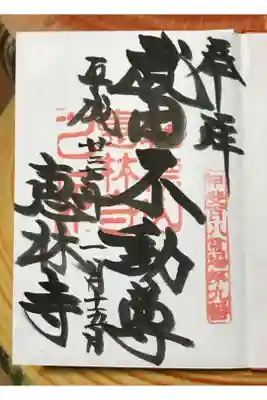 奉拝
甲斐百八霊場第九番
武田不動尊
平成廿三年一月十五日
惠林寺